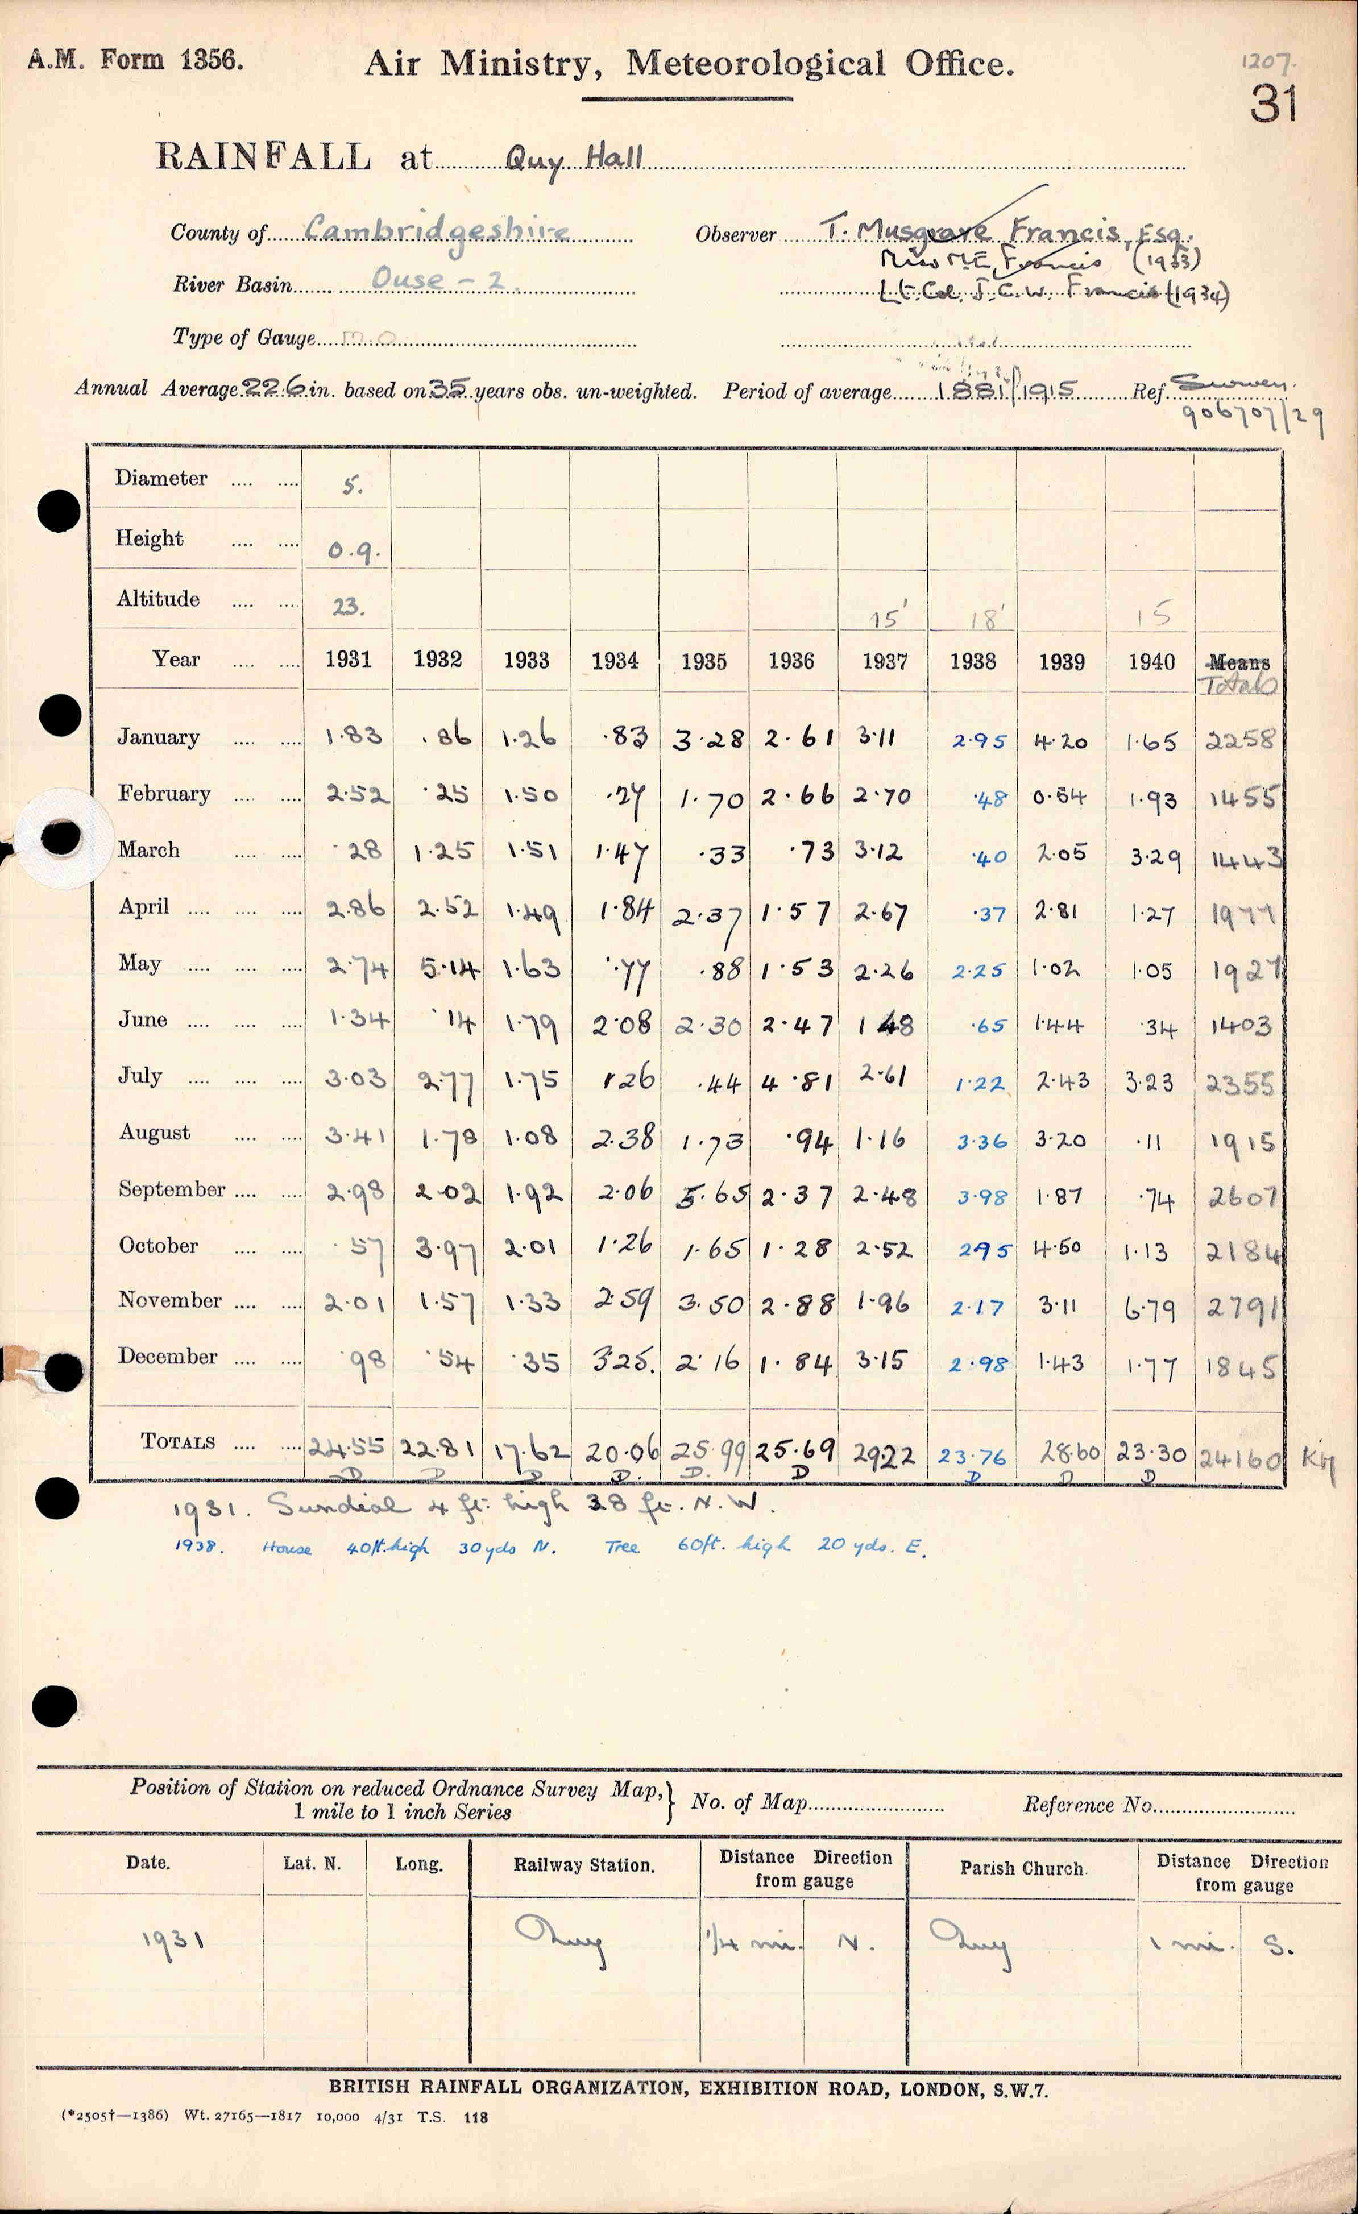 A.M. Form 1356.
Air Ministry, Meteorological Office.
1207.
31
RAINFALL at Quy Hall
County of Cambridgeshire Observer T. Musgrave Francis, Esq.
Miss M.E. Francis (1933)
River Basin Ouse - 2. Lt. Col. J.C.W. Francis (1934)
Type of Gauge M.O.
Annual Average 22.6 in. based on 35 years obs. un-weighted. Period of average 1881/1915 Ref. Survey.
906707/29
Diameter .... .... 5.
Height .... .... 0.9.
Altitude .... .... 23. 15' 18' 15
Year .... .... 1931 1932 1933 1934 1935 1936 1937 1938 1939 1940 Means
Totals
January .... .... 1.83 .86 1.26 .83 3.28 2.61 3.11 2.95 4.20 1.65 2258
February .... .... 2.52 .25 1.50 .27 1.70 2.66 2.70 .48 0.54 1.93 1455
March .... .... .28 1.25 1.51 1.47 .33 .73 3.12 .40 2.05 3.29 1443
April .... .... .... 2.86 2.52 1.49 1.84 2.37 1.57 2.67 .37 2.81 1.27 1977
May .... .... .... 2.74 5.14 1.63 .77 .88 1.53 2.26 2.25 1.02 1.05 1927
June .... .... .... 1.34 .14 1.79 2.08 2.30 2.47 1 48 .65 1.44 .34 1403
July .... .... .... 3.03 2.77 1.75 1.26 .44 4.81 2.61 1.22 2.43 3.23 2355
August .... .... 3.41 1.78 1.08 2.38 1.73 .94 1.16 3.36 3.20 .11 1915
September .... .... 2.98 2.02 1.92 2.06 5.65 2.37 2.48 3.98 1.87 .74 2607
October .... .... .57 3.97 2.01 1.26 1.65 1.28 2.52 2.95 4.50 1.13 2184
November .... .... 2.01 1.57 1.33 2.59 3.50 2.88 1.96 2.17 3.11 6.79 2791
December .... .... .98 .54 .35 3.25. 2.16 1.84 3.15 2.98 1.43 1.77 1845
TOTALS .... .... 24.55 22.81 17.62 20.06 25.99 25.69 29.22 23.76 28.60 23.30 24160
D D D D. D. D D D D
1931. Sundial 4 ft. high 38 ft. N.W.
1938. House 40ft. high 30 yds N. Tree 60ft. high 20 yds. E.
Position of Station on reduced Ordnance Survey Map,} No. of Map Reference No.
1 mile to 1 inch Series
Date. Lat. N. Long. Railway Station. Distance Direction from gauge Parish Church. Distance Direction from gauge
1931 Quy 1/4 mi. N. Quy 1 mi. S.
BRITISH RAINFALL ORGANIZATION, EXHIBITION ROAD, LONDON, S.W.7.
(*2505†—1386) Wt. 27165—1817 10,000 4/31 T.S. 118